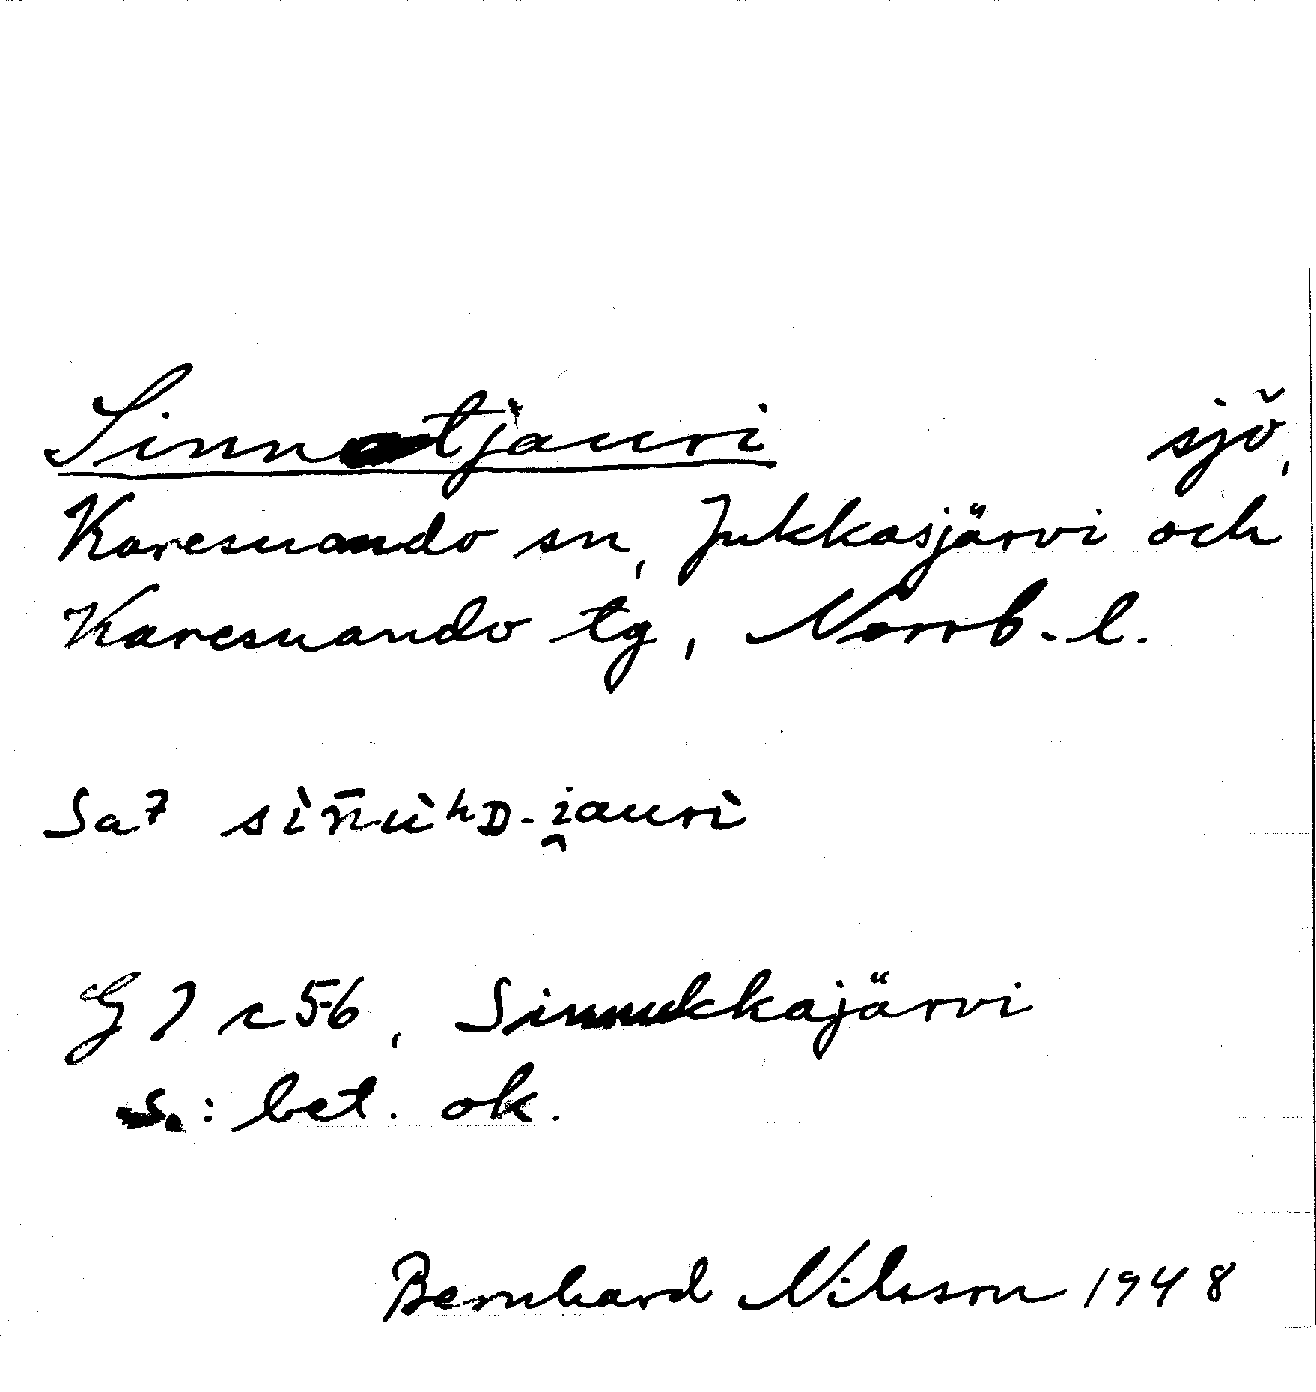 Sinnotjauri sjö,
Karesuando sn, Jukkasjärvi och
Karesuando tg, Norrb. l.
Sa7 sìn̄ùʰD-i̯aurì
G7 c56, Sinnukkajärvi
s.: bet. ok.
Bernhard Nilsson 1948